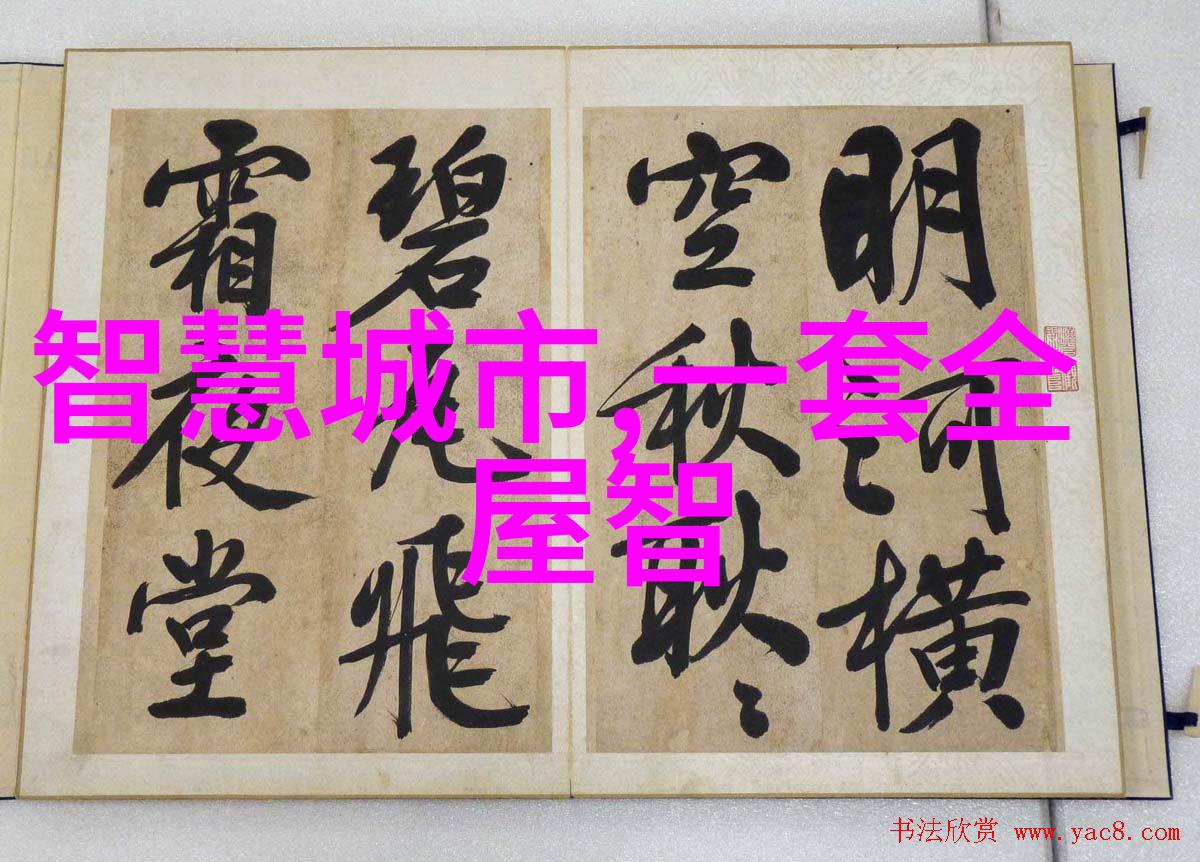 智慧城市,一套全
屋智
明河横
空秋耿〻
碧瓦飛
霜夜堂
书法欣赏 www.yac8.com